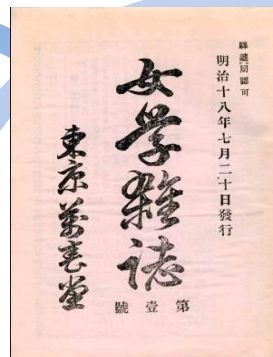 驛遞局認可
明治十八年七月二十日發行
女学雑誌
第壹號
東京萬春堂